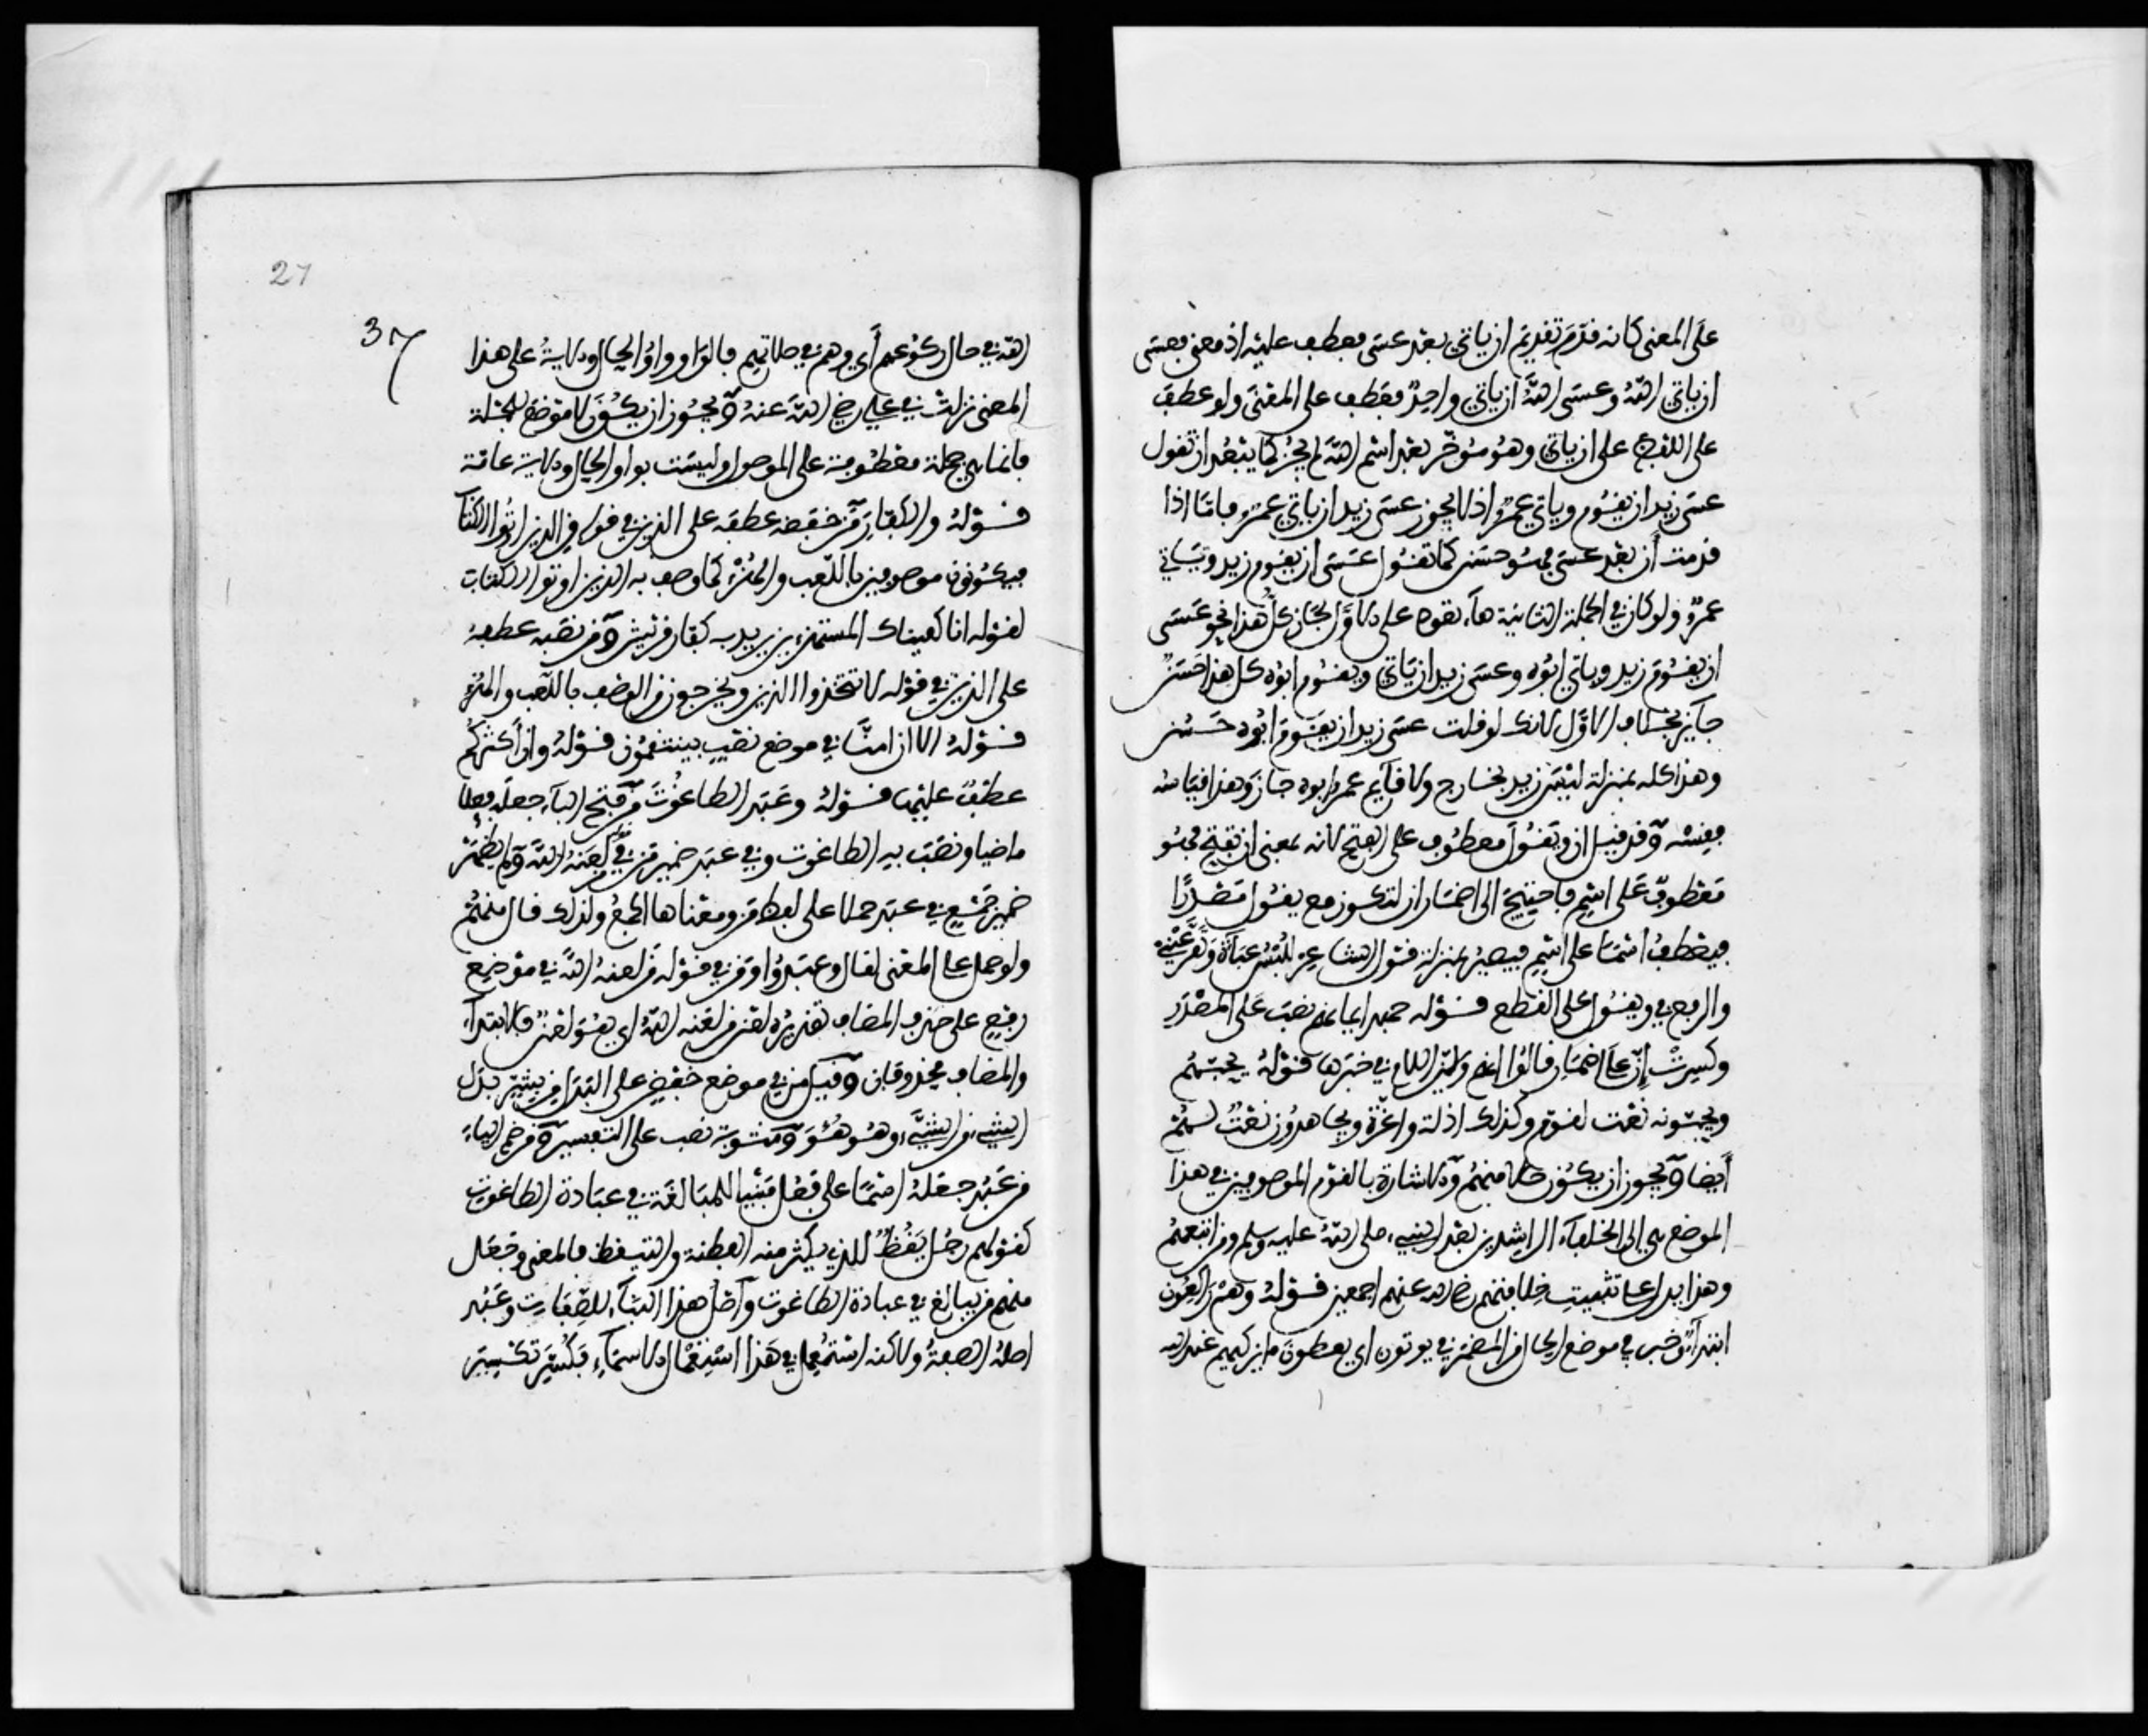 على المعنى كانه قدم تقديم ان ياتي بعد عسى فعطف عليه اذ معنى فعسى
ان ياتي الله وعسى الله ان ياتي واحد فعطف على المعنى ولو عطف
على اللفظ على ان ياتي وهو مؤخر بعد اسم الله لم يجز كما يبعد ان تقول
عسى زيد ان يقوم وياتي عمرو اذ لا يجوز عسى زيد ان ياتي عمرو فاما اذا
قدمت أن بعد عسى فهو حسن كما تقول عسى ان يقوم زيد وياتي
عمرو ولو كان في الجملة الثانية هاء تعود على الاول لجاز كل هذا نحو عسى
ان يقوم زيد وياتي ابوه وعسى زيد ان ياتي ويقوم ابوه كل هذا حسن
جائز بخلاف الاول لانك لو قلت عسى زيد ان يقوم ابوه حسن
وهذا كله بمنزلة ليس زيد بخارج ولا قائم عمرو ابوه جاز وهذا قياسه
فقسه وقد قيل ان ويقول معطوف على الفتح لانه بمعنى ان يفتح فهو
معطوف على اسم فاحتيج الى اضمار ان لتكون مع يقول مصدرا
فيعطف اسما على اسم فيصير بمنزلة قول الشاعر للبس عباءة وتقر عيني
والرفع في ويقول على القطع قوله جهد ايمانهم نصب على المصدر
وكسرت إن على اضمار قالوا انهم ولان اللام في خبرها قوله يحبهم
ويحبونه نعت لقوم وكذلك اذلة واعزة ويجاهدون نعت لهم
أيضا ويجوز ان يكون حالا منهم والاشارة بالقوم الموصوفين في هذا
الموضع هي الى الخلفاء الراشدين بعد النبيء صلى الله عليه وسلم ومن اتبعهم
وهذا يدل على تثبيت خلافتهم رضي الله عنهم اجمعين قوله وهم راكعون
ابتداء وخبر في موضع الحال من المضمر في يوتون اي يعطون ما يزكيهم عند الله
27
37
الله في حال ركوعهم أي وهم في صلاتهم فالواو واو الحال والاية على هذا
المعنى نزلت في علي رضي الله عنه ويجوز ان يكون لا موضع للجملة
فانما هي جملة معطوفة على الموصول وليست بواو الحال والاية عامة
قوله والكفار من خفضه عطفه على الذين في قوله من الذين اوتوا الكتاب
فيكونون موصوفين باللعب والهزء كما وصف به الذين اوتوا الكتاب
لقوله انا كفيناك المستهزين يريد به كفار قريش ومن نصبه عطفه
على الذين في قوله لا تتخذوا الذين ويخرجون من الوصف باللعب والهزء
قوله الا ان امنا في موضع نصب بينقمون قوله وان أكثركم
عطف عليها قوله وعبد الطاغوت من فتح الباء جعله فعلا
ماضيا ونصب به الطاغوت وفي عبد ضمير من في من لعنه الله ولم يظهر
ضمير جمع في عبد حملا على لفظ من ومعناها الجمع ولذلك قال منهم
ولو حمل على المعنى لقال وعبدوا ومن في قوله من لعنه الله في موضع
رفع على حذف المضاف تقديره لعن من لعنه الله اي هو لعن فالابتداء
والمضاف محذوفان وقيل من في موضع خفض على البدل من بشر بدل
الشيء من الشيء وهو هو ومثوبة نصب على التفسير ومن ضم الباء
من عبد جعله اسما على فعل مبنيا للمبالغة في عبادة الطاغوت
كقولهم رجل يقظ للذي يكثر منه الفطنة والتيقظ فالمعنى وجعل
منهم من يبالغ في عبادة الطاغوت وأصل هذا البناء للصفات وعبد
اصله الصفة ولاكنه استعمل في هذا استعمال الاسماء فكسر تكسير